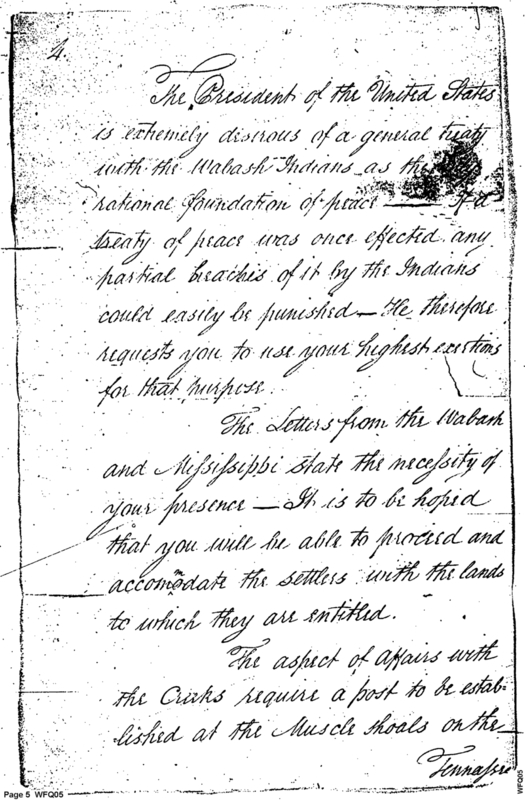 4.
The President of the United States
is extremely desirous of a general treaty
with the Wabash Indians as the
rational foundation of peace — If a
treaty of peace was once effected any
partial breaches of it by the Indians
could easily be punished — He therefore
requests you to use your highest exertions
for that purpose
The Letters from the Wabash
and Mississippi state the necessity of
your presence — It is to be hoped
that you will be able to proceed and
accommodate the settlers with the lands
to which they are entitled.
The aspect of Affairs with
the Creeks require a post to be estab-
lished at the Muscle shoals on the
Tennassee
Page 5 WFQ05
WFQ05